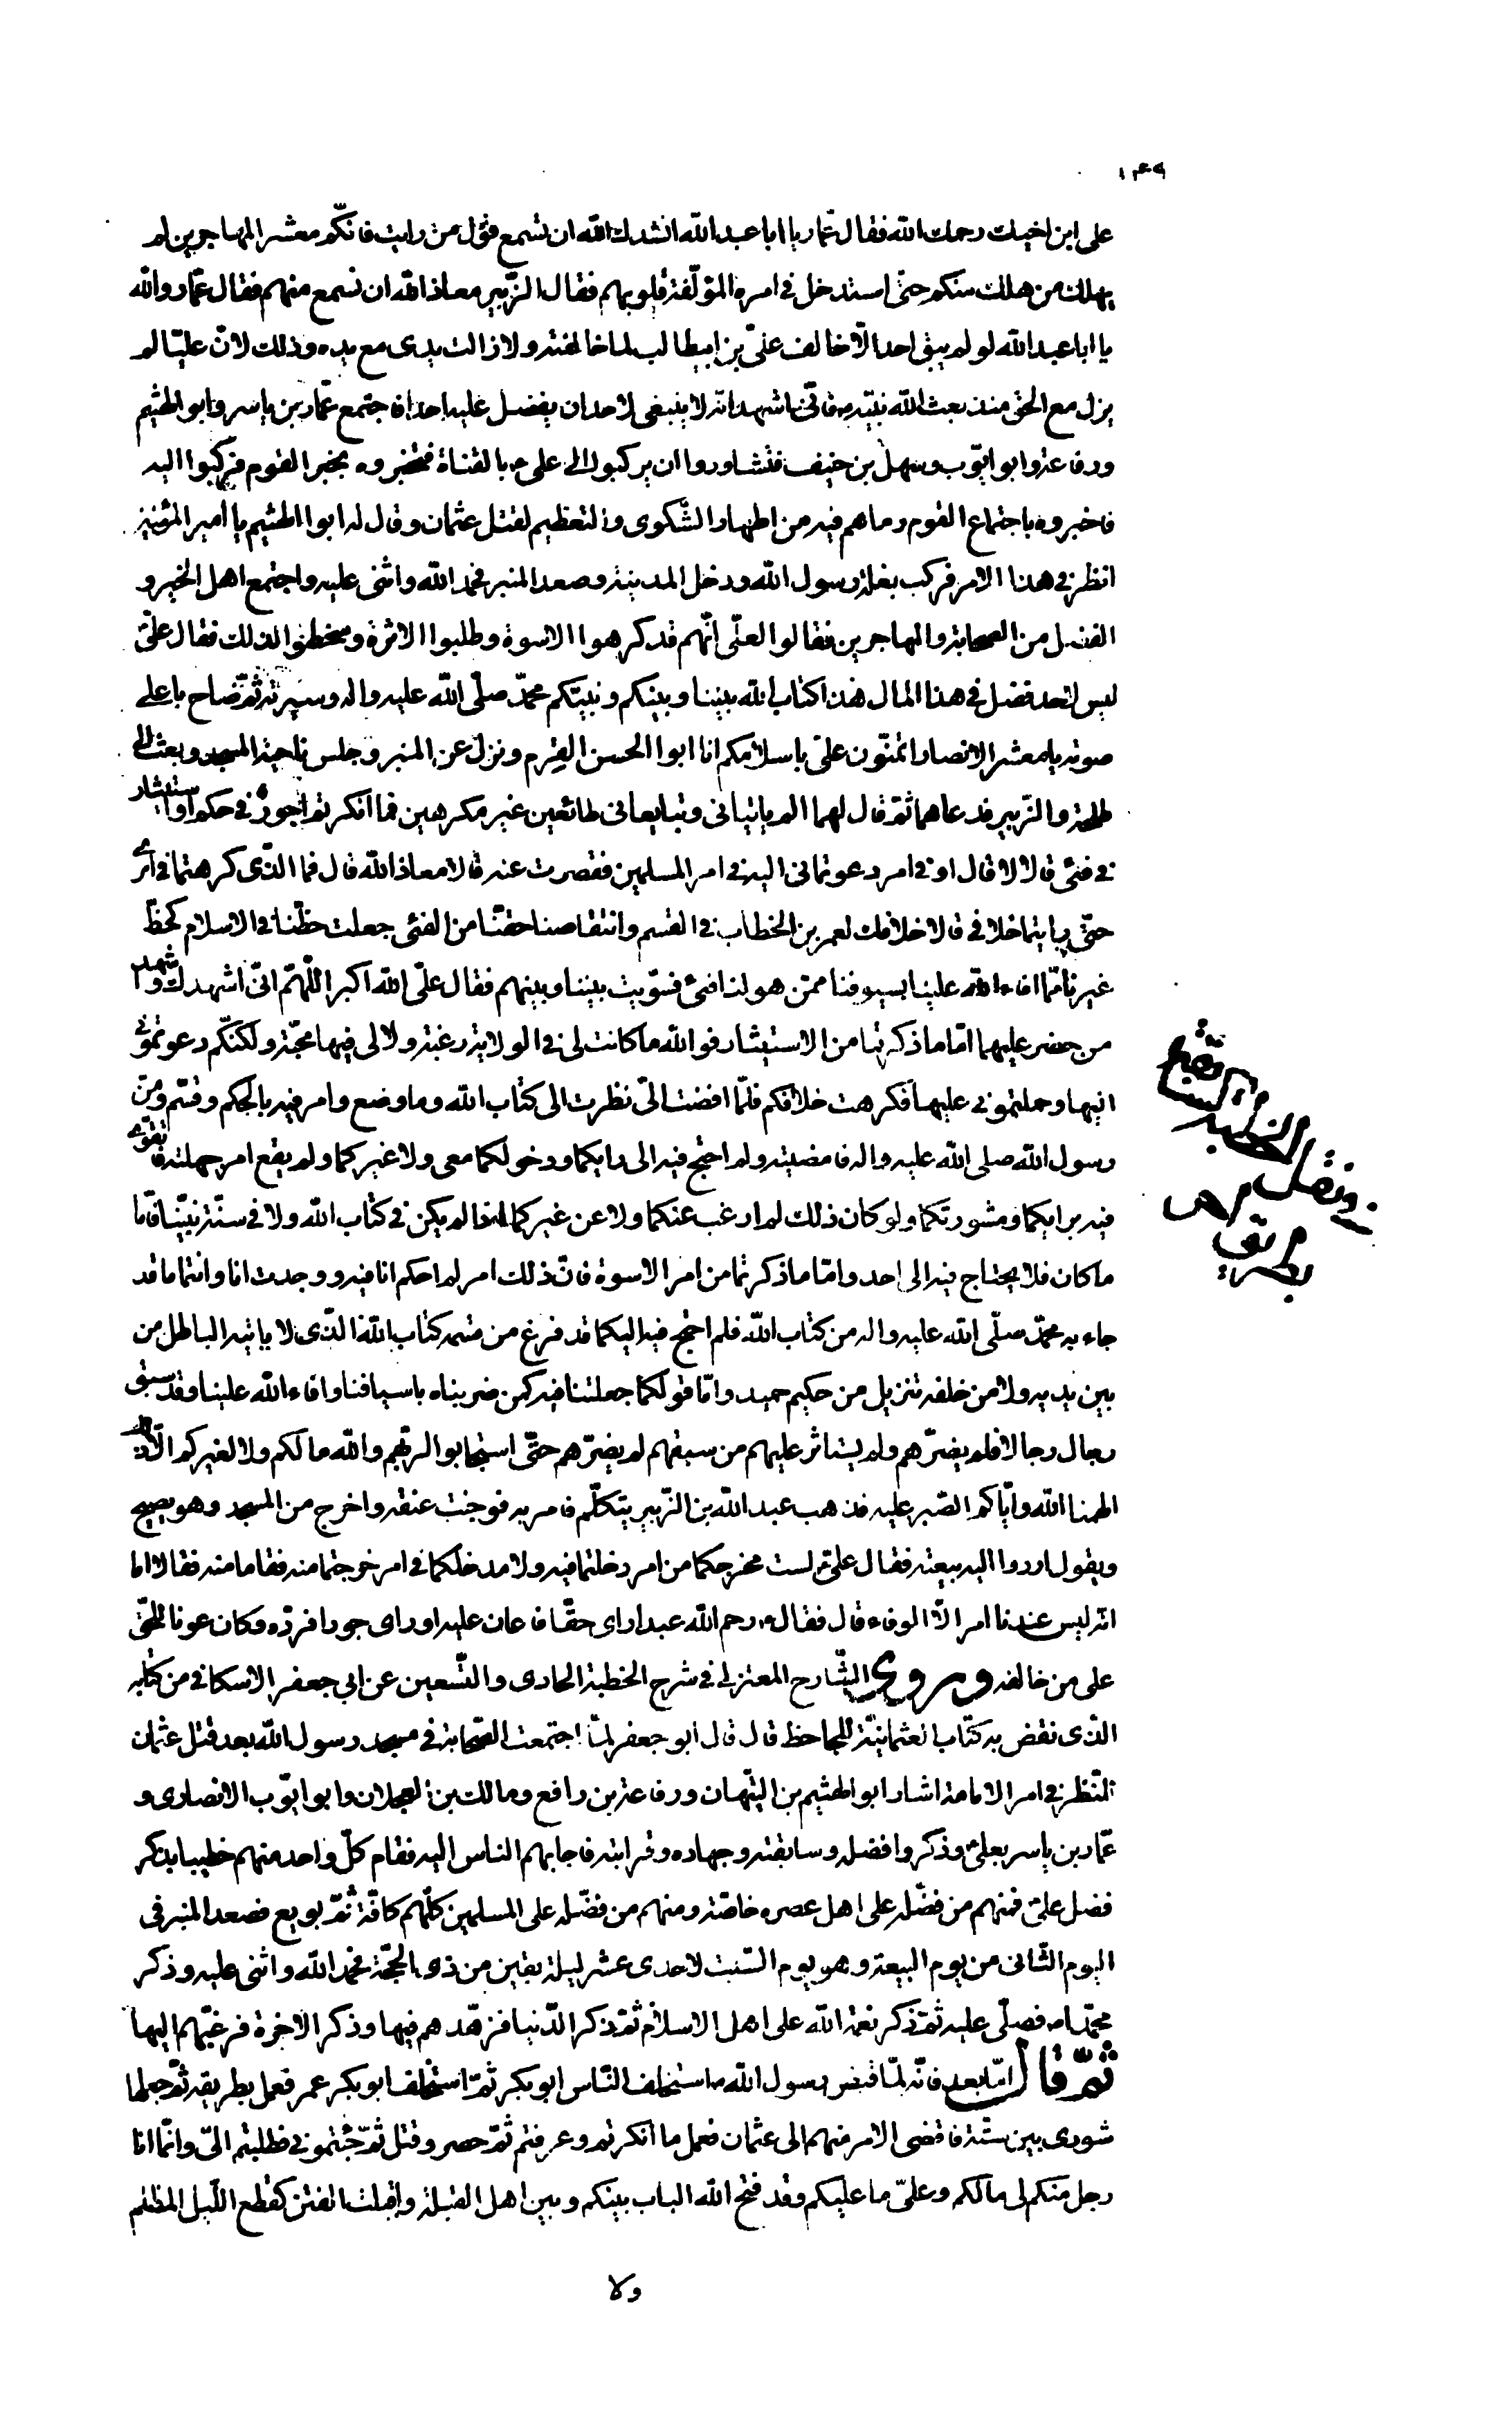 ١٤٩
على ابن اخيك رحمك الله فقال عمّار يا ابا عبد الله انشدك الله ان تسمع قول من رايت فانّكم معشر المهاجرين لم
يهلك من هلك منكم حتى استدخل في امره المؤلّفة قلوبهم فقال الزّبير معاذ الله ان نسمع منهم فقال عمّار والله
يا ابا عبد الله لو لم يبق احد الّا خالف عليّ بن ابيطالب لما خالفته ولا زالت يدى مع يده وذلك لانّ عليّا لم
يزل مع الحق منذ بعث الله نبيّه ص فانّى اشهد انّه لا ينبغى لاحد ان يفضل عليه احدا فاجتمع عمّار بن ياسر وابو الهثيم
ورفاعة وابو ايّوب وسهل بن حنيف فتشاوروا ان يركبوا الى على ع بالقناة فتخبروه بخبر القوم فركبوا اليه
فاخبروه باجتماع القوم وما هم فيه من اظهار الشّكوى والتعظيم لقتل عثمان وقال له ابوا الهثيم يا امير المؤمنين
انظر في هذا الامر فركب بغلة رسول الله ودخل المدينة وصعد المنبر فحمد الله واثنى عليه واجتمع اهل الخير و
الفضل من الصحابة والمهاجرين فقالوا لعلّى انّهم قد كرهوا الاسوة وطلبوا الاثرة وسخطوا لذلك فقال علىّ
ليس لاحد فضل في هذا المال هذا كتاب الله بيننا وبينكم ونبيّكم محمّد صلّى الله عليه واله وسيرته ثمّ صاح باعلى
صوته يا معشر الانصار اتمنّون علىّ باسلامكم انا ابوا الحسن القرم ونزل عن المنبر وجلس ناحية المسجد وبعث الى
طلحة والزّبير فدعاهما ثمّ قال لهما الم ياتيانى وتبايعانى طائعين غير مكرهين فما انكرتم اجور في حكم او استيثار
في فئى قالا لا قال او في امر دعوتمانى اليه في امر المسلمين فقصرت عنه قالا معاذ الله قال فما الذّى كرهتما في امرى
حتّى رايتما خلافى قالا خلافك لعمر بن الخطاب في القسم وانتقاصنا حقنّا من الفئى جعلت حظّنا في الاسلام كحظّ
غيرنا ممّا افاء الله علينا بسيوفنا ممّن هو لنا فئ فسوّيت بيننا وبينهم فقال علىّ الله اكبر اللّهمّ انّى اشهدك واشهد
من حضر عليهما امّا ما ذكرتما من الاستيثار فوالله ما كانت لى في الولاية رغبة ولا لى فيها محبّة ولكنّكم دعوتمونى
اليها وحملتمونى عليها فكرهت خلافكم فلمّا افضت الىّ نظرت الى كتاب الله وما وضع وامر فيه بالحكم وقسّم وسنّ
رسول الله صلى الله عليه واله فامضيته ولم احتج فيه الى رايكما ودخولكما معى ولا غيركما ولم يقع امر جهلته فاتقوّى
فيه برايكما ومشورتكما ولو كان ذلك لم ارغب عنكما ولا عن غيركما اذا لم يكن في كتاب الله ولا في سنّة نبيّنا فامّا
ما كان فلا يحتاج فيه الى احد وامّا ما ذكرتما من امر الاسوة فانّ ذلك امر لم احكم انا فيه ووجدت انا وانتما ما قد
جاء به محمّد صلّى الله عليه واله من كتاب الله فلم احتج فيه اليكما قد فرغ من قسمه كتاب الله الذّى لا ياتيه الباطل من
بين يديه ولا من خلفه تنزيل من حكيم حميد وامّا قولكما جعلتنا فيه كمن ضربناه باسيافنا وافاء الله علينا وقد سبق
رجال رجالا فلم يضرّهم ولم يستاثر عليهم من سبقهم لم يضرّهم حتّى استجابوا لربّهم والله ما لكم ولا لغيركم الّا ذلك
الهمنا الله وايّاكم الصّبر عليه فذهب عبد الله بن الزّبير يتكلّم فامر به فوجئت عنقه واخرج من المسجد وهو يصيح
ويقول اردوا اليه بيعته فقال علىّ لست مخرجكما من امر دخلتما فيه ولا مدخلكما في امر خرجتما منه فقاما منه فقالا اما
انّه ليس عندنا امر الّا الوفاء قال فقال ع رحم الله عبدا راى حقّا فاعان عليه او راى جورا فردّه وكان عونا للحقّ
على من خالفه وروى الشّارح المعتزلى في شرح الخطبة الحادى والتّسعين عن ابى جعفر الاسكافى من كتابه
الذّى نقض به كتاب العثمانيّة للجاحظ قال قال ابو جعفر لمّا اجتمعت الصّحابة في مسجد رسول الله بعد قتل عثمان
للنّظر في امر الامامة اشار ابو الهثيم بن التيّهان ورفاعة بن رافع ومالك بن العجلان وابو ايّوب الانصارى و
عمّار بن ياسر بعلىّ وذكروا فضله وسابقته وجهاده وقرابته فاجابهم الناس اليه فقام كلّ واحد منهم خطيبا يذكر
فضل علىّ فمنهم من فضّله على اهل عصره خاصّة ومنهم من فضّله على المسلمين كلّهم كافّة ثمّ بويع فصعد المنبر فى
اليوم الثّانى من يوم البيعة وهو يوم السّبت لاحدى عشر ليلة بقين من ذى الحجّة فحمد الله واثنى عليه وذكر
محمّدا ص فصلّى عليه ثمّ ذكر نعمة الله على اهل الاسلام ثمّ ذكر الدّنيا فزهّدهم فيها وذكر الاخرة فرغّبهم اليها
ثمّ قال امّا بعد فانّه لمّا قبض رسول الله ص استخلف النّاس ابو بكر ثمّ استخلف ابو بكر عمر فعمل بطريقه ثمّ جعلها
شورى بين ستّة فاقضى الامر منهم الى عثمان فعمل ما انكرتم وعرفتم ثمّ حصر وقتل ثمّ جئتمونى فطلبتم الىّ وانّما انا
رجل منكم لى ما لكم وعلىّ ما عليكم وقد فتح الله الباب بينكم وبين اهل القبلة واقبلت الفتن كقطع اللّيل المظلم
ولا
ونقل
الخطبة
بطريق